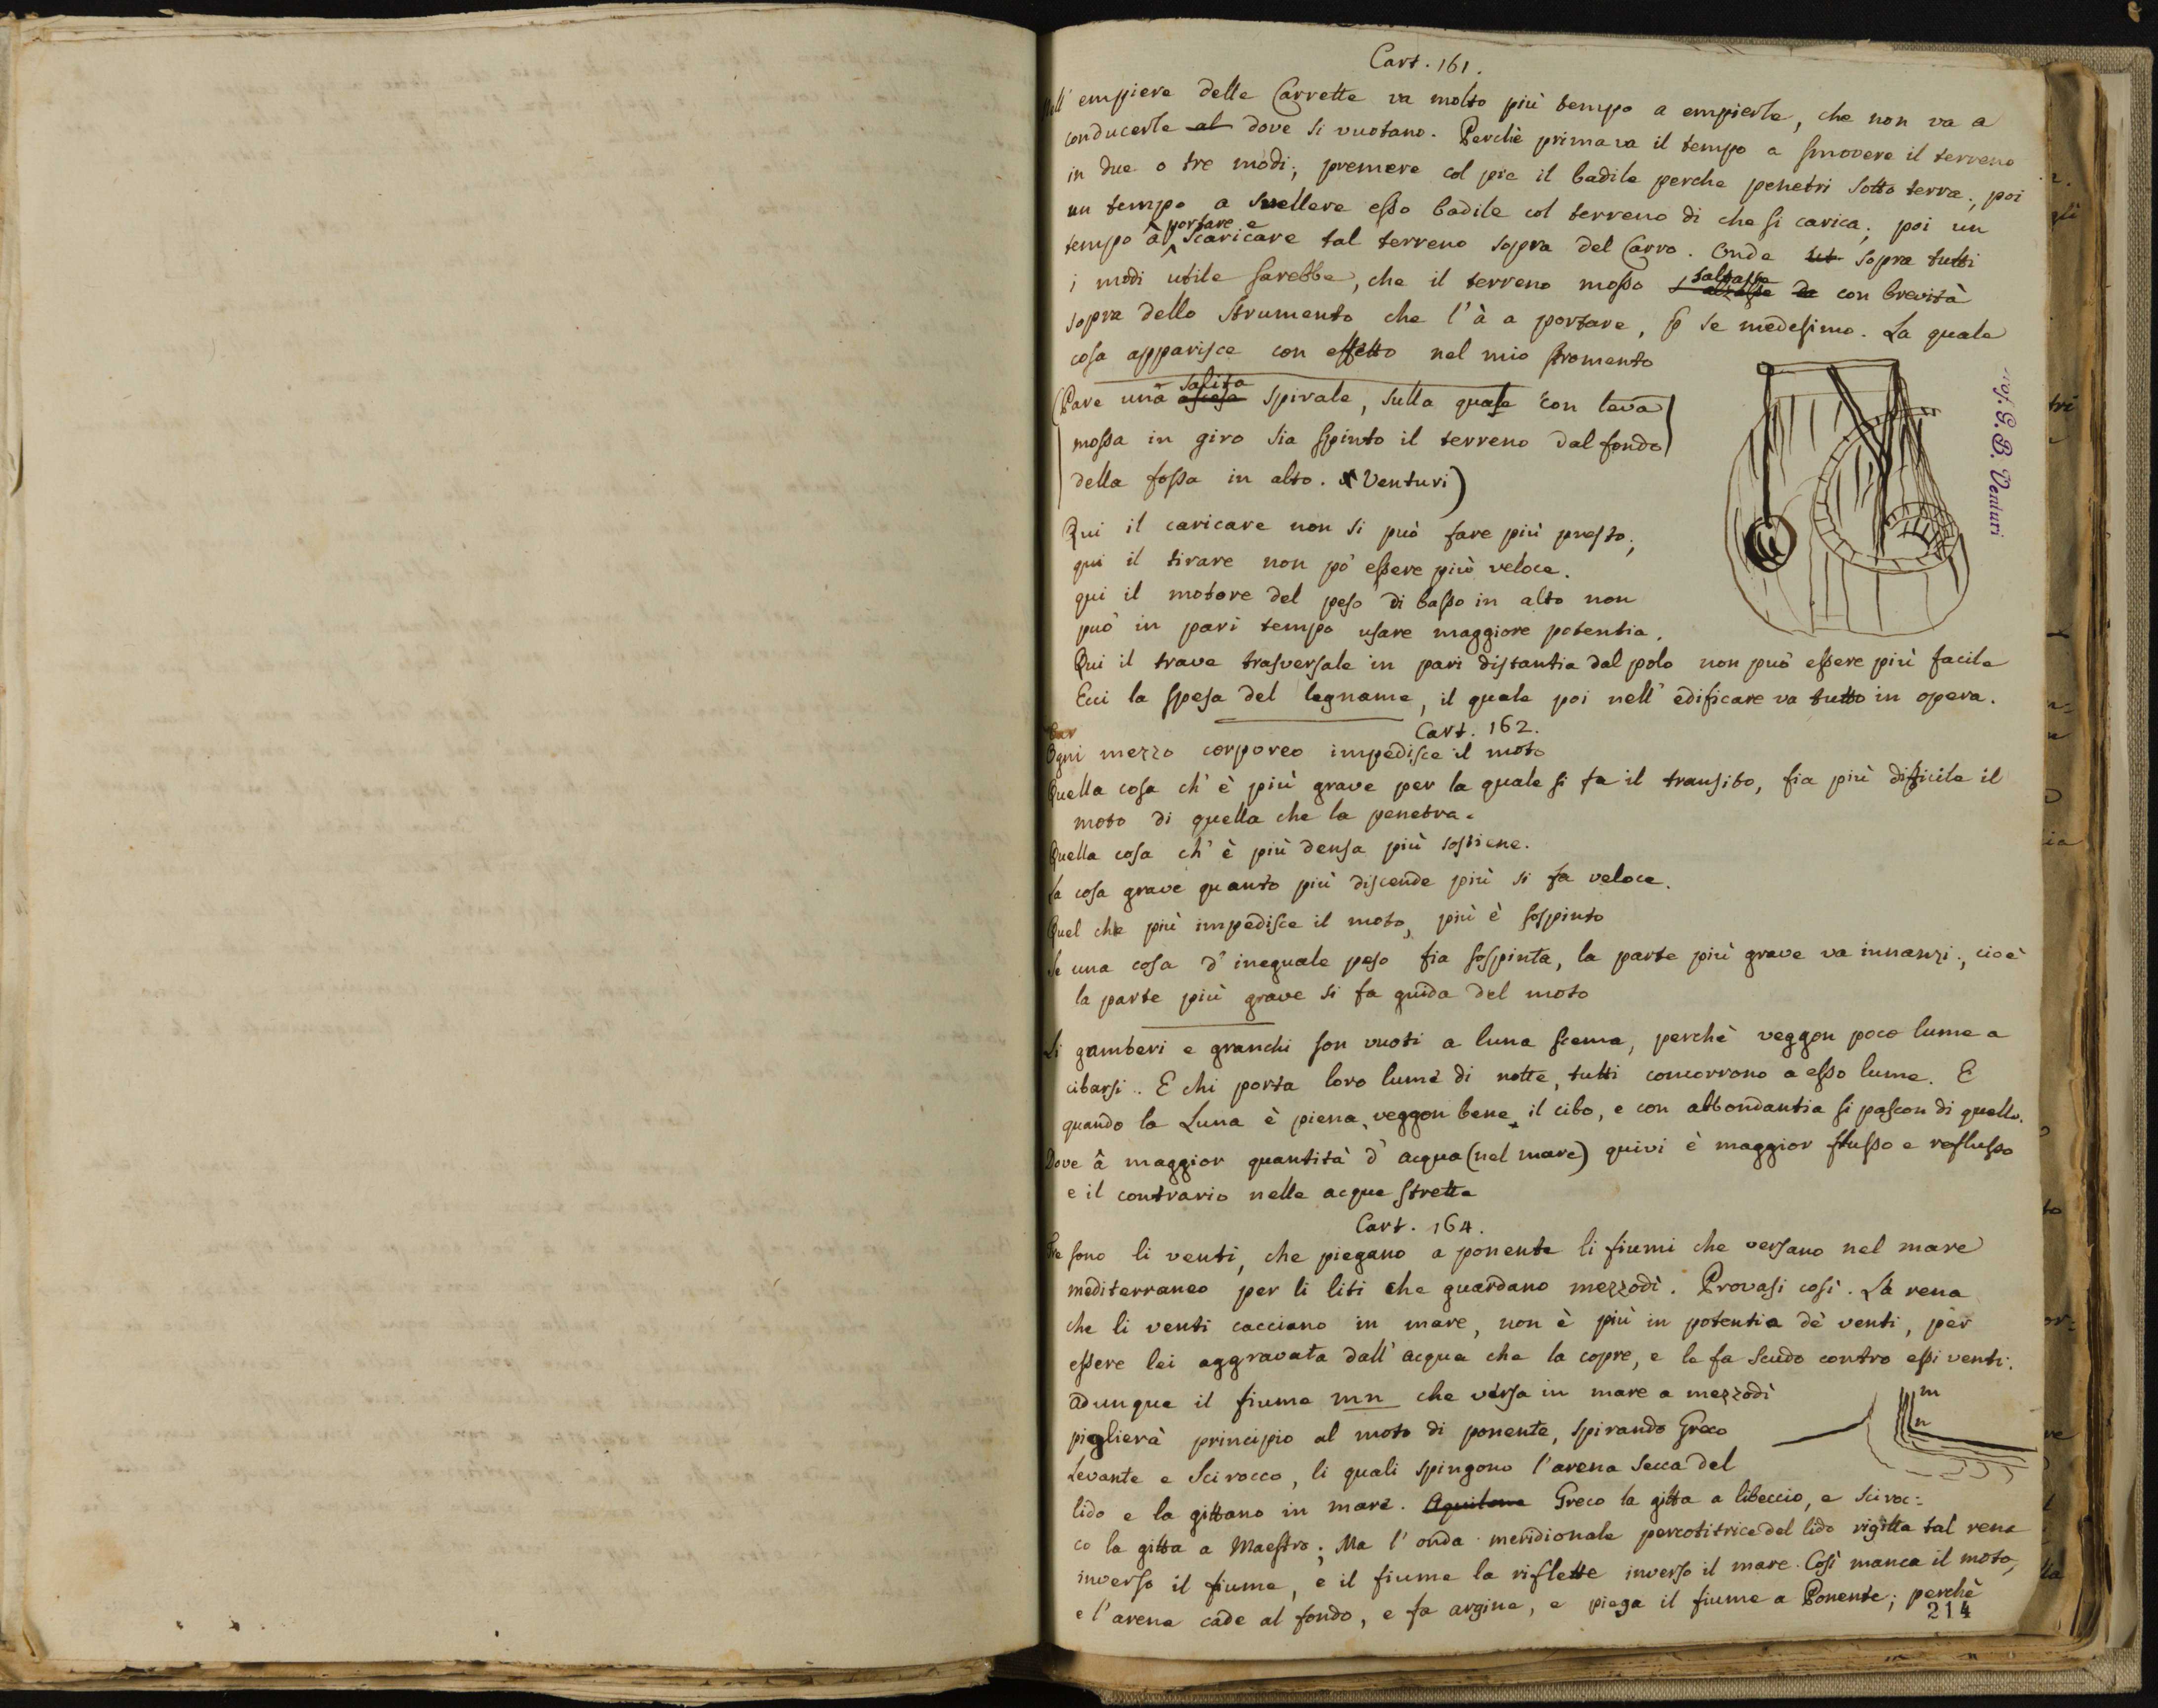 Cart. 161.
Nell' empiere delle Carrette va molto più tempo a empierle, che non va a
conducerle al dove si vuotano. Perchè prima va il tempo a smovere il terreno
in due o tre modi; premere col pie il badile perche penetri sotto terra; poi
un tempo a svellere esso badile col terreno di che si carica; poi un
tempo à portare e scaricare tal terreno sopra del Carro. Onde tut sopra tutti
i modi utile sarebbe, che il terreno mosso saltasse da con brevità
sopra dello strumento che l'à a portare, p se medesimo. La quale
cosa apparisce con effetto nel mio stromento
(Pare una ascesa salita spirale, sulla quale con leva
mossa in giro sia spinto il terreno dal fondo
della fossa in alto. Venturi)
Prof. G. B. Venturi
Qui il caricare non si può fare più presto;
qui il tirare non pò essere più veloce.
qui il motore del peso di basso in alto non
può in pari tempo usare maggiore potentia.
Qui il trave trasversale in pari distantia dal polo non può essere più facile
Ecci la spesa del legname, il quale poi nell' edificare va tutto in opera.
Cart. 162.
Ogni mezzo corporeo impedisce il moto
Quella cosa ch' è più grave per la quale si fa il transito, fia più difficile il
moto di quella che la penetra.
Quella cosa ch' è più densa più sostiene.
La cosa grave quanto più discende più si fa veloce.
Quel che più impedisce il moto, più è sospinto
Se una cosa d' ineguale peso fia sospinta, la parte più grave va innanzi; cioè
la parte più grave si fa guida del moto
Li gamberi e granchi son vuoti a luna scema, perchè veggon poco lume a
cibarsi.. E chi porta loro lume di notte, tutti concorrono a esso lume. E
quando la Luna è piena, veggon bene il cibo, e con abbondantia si pascon di quello.
Dove â maggior quantità d' acqua (nel mare) quivi è maggior flusso e reflusso
e il contrario nelle acque strette
Cart. 164.
Tre sono li venti, che piegano a ponente li fiumi che versano nel mare
mediterraneo per li liti che guardano mezzodì. Provasi così. La rena
che li venti cacciano in mare, non è più in potentia de' venti, per
essere lei aggravata dall' acqua che la copre, e le fa scudo contro essi venti.
adunque il fiume mn che versa in mare a mezzodì
piglierà principio al moto di ponente, spirando Greco
Levante e Scirocco, li quali spingono l'arena secca del
m
n
lido e la gittano in mare. Aquilone Greco la gitta a libeccio, e sciroc:
co la gitta a Maestro; Ma l' onda meridionale percotitrice del lido rigitta tal rena
inverso il fiume, e il fiume la riflette inverso il mare. Così manca il moto,
e l'arena cade al fondo, e fa argine, e piega il fiume a Ponente; perchè
214